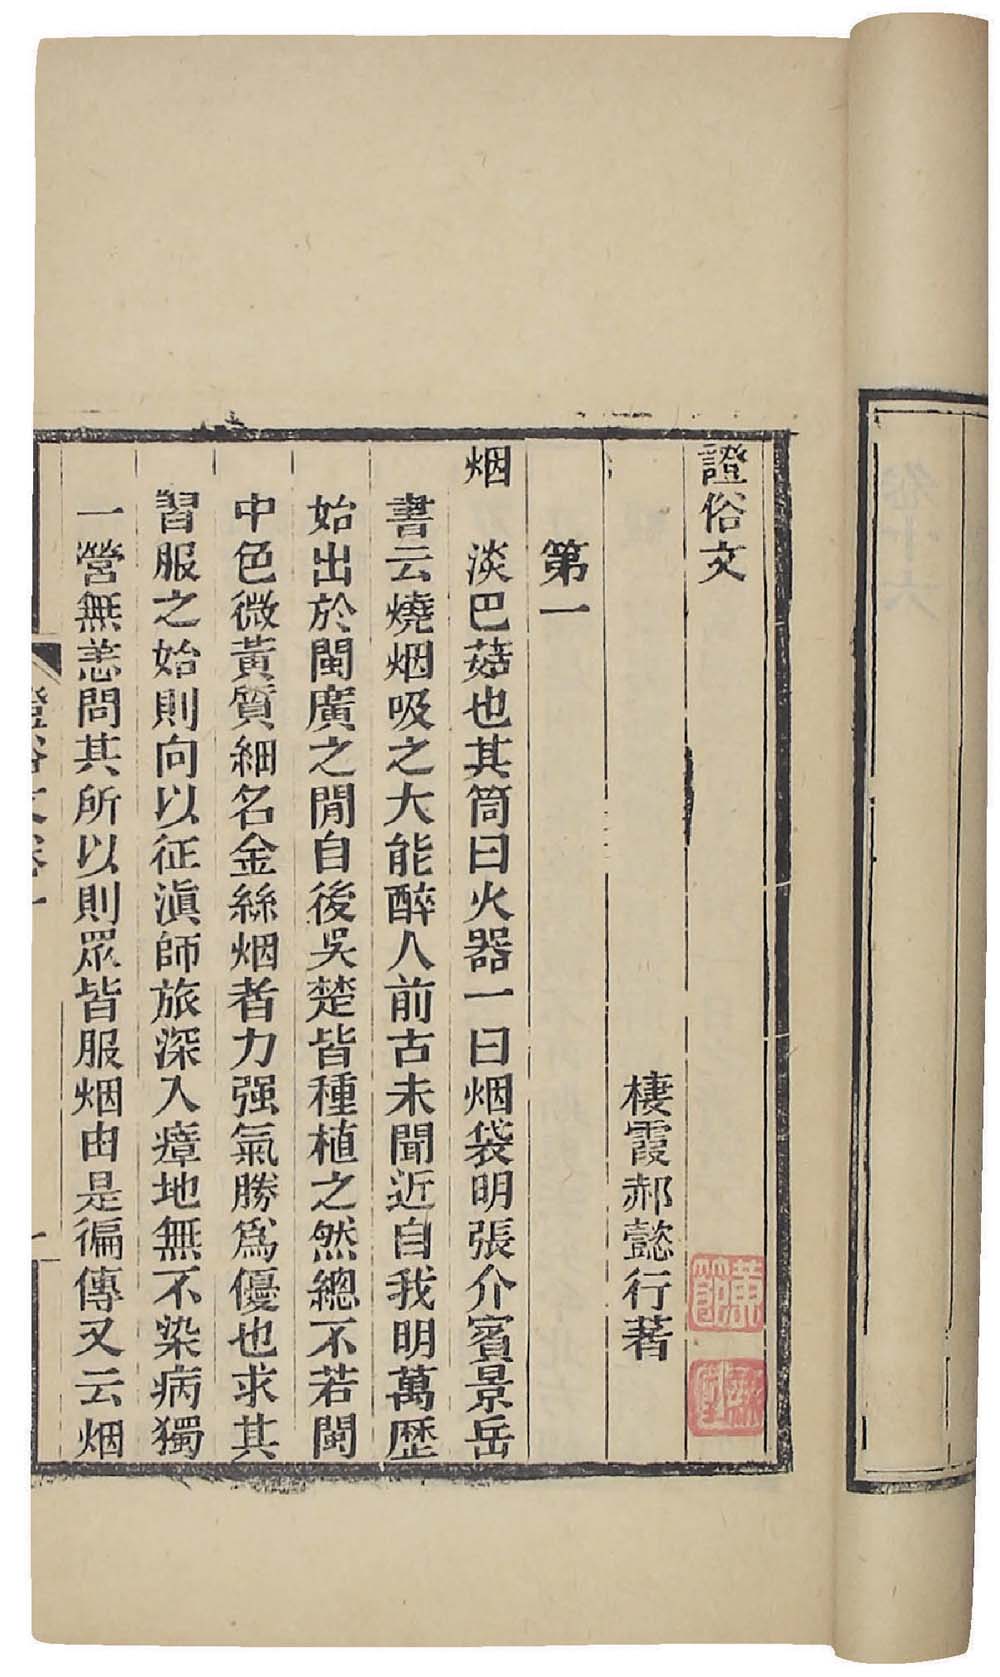 證俗文
棲霞郝懿行著
第一
烟　淡巴菇也其筒曰火器一曰烟袋明張介賓景岳
書云燒烟吸之大能醉人前古未聞近自我明萬歴
始出於閩廣之閒自後吳楚皆種植之然總不若閩
中色微黃質細名金絲烟者力强氣勝爲優也求其
習服之始則向以征滇師旅深入瘴地無不染病獨
一營無恙問其所以則眾皆服烟由是徧傳又云烟
證俗文卷一
一